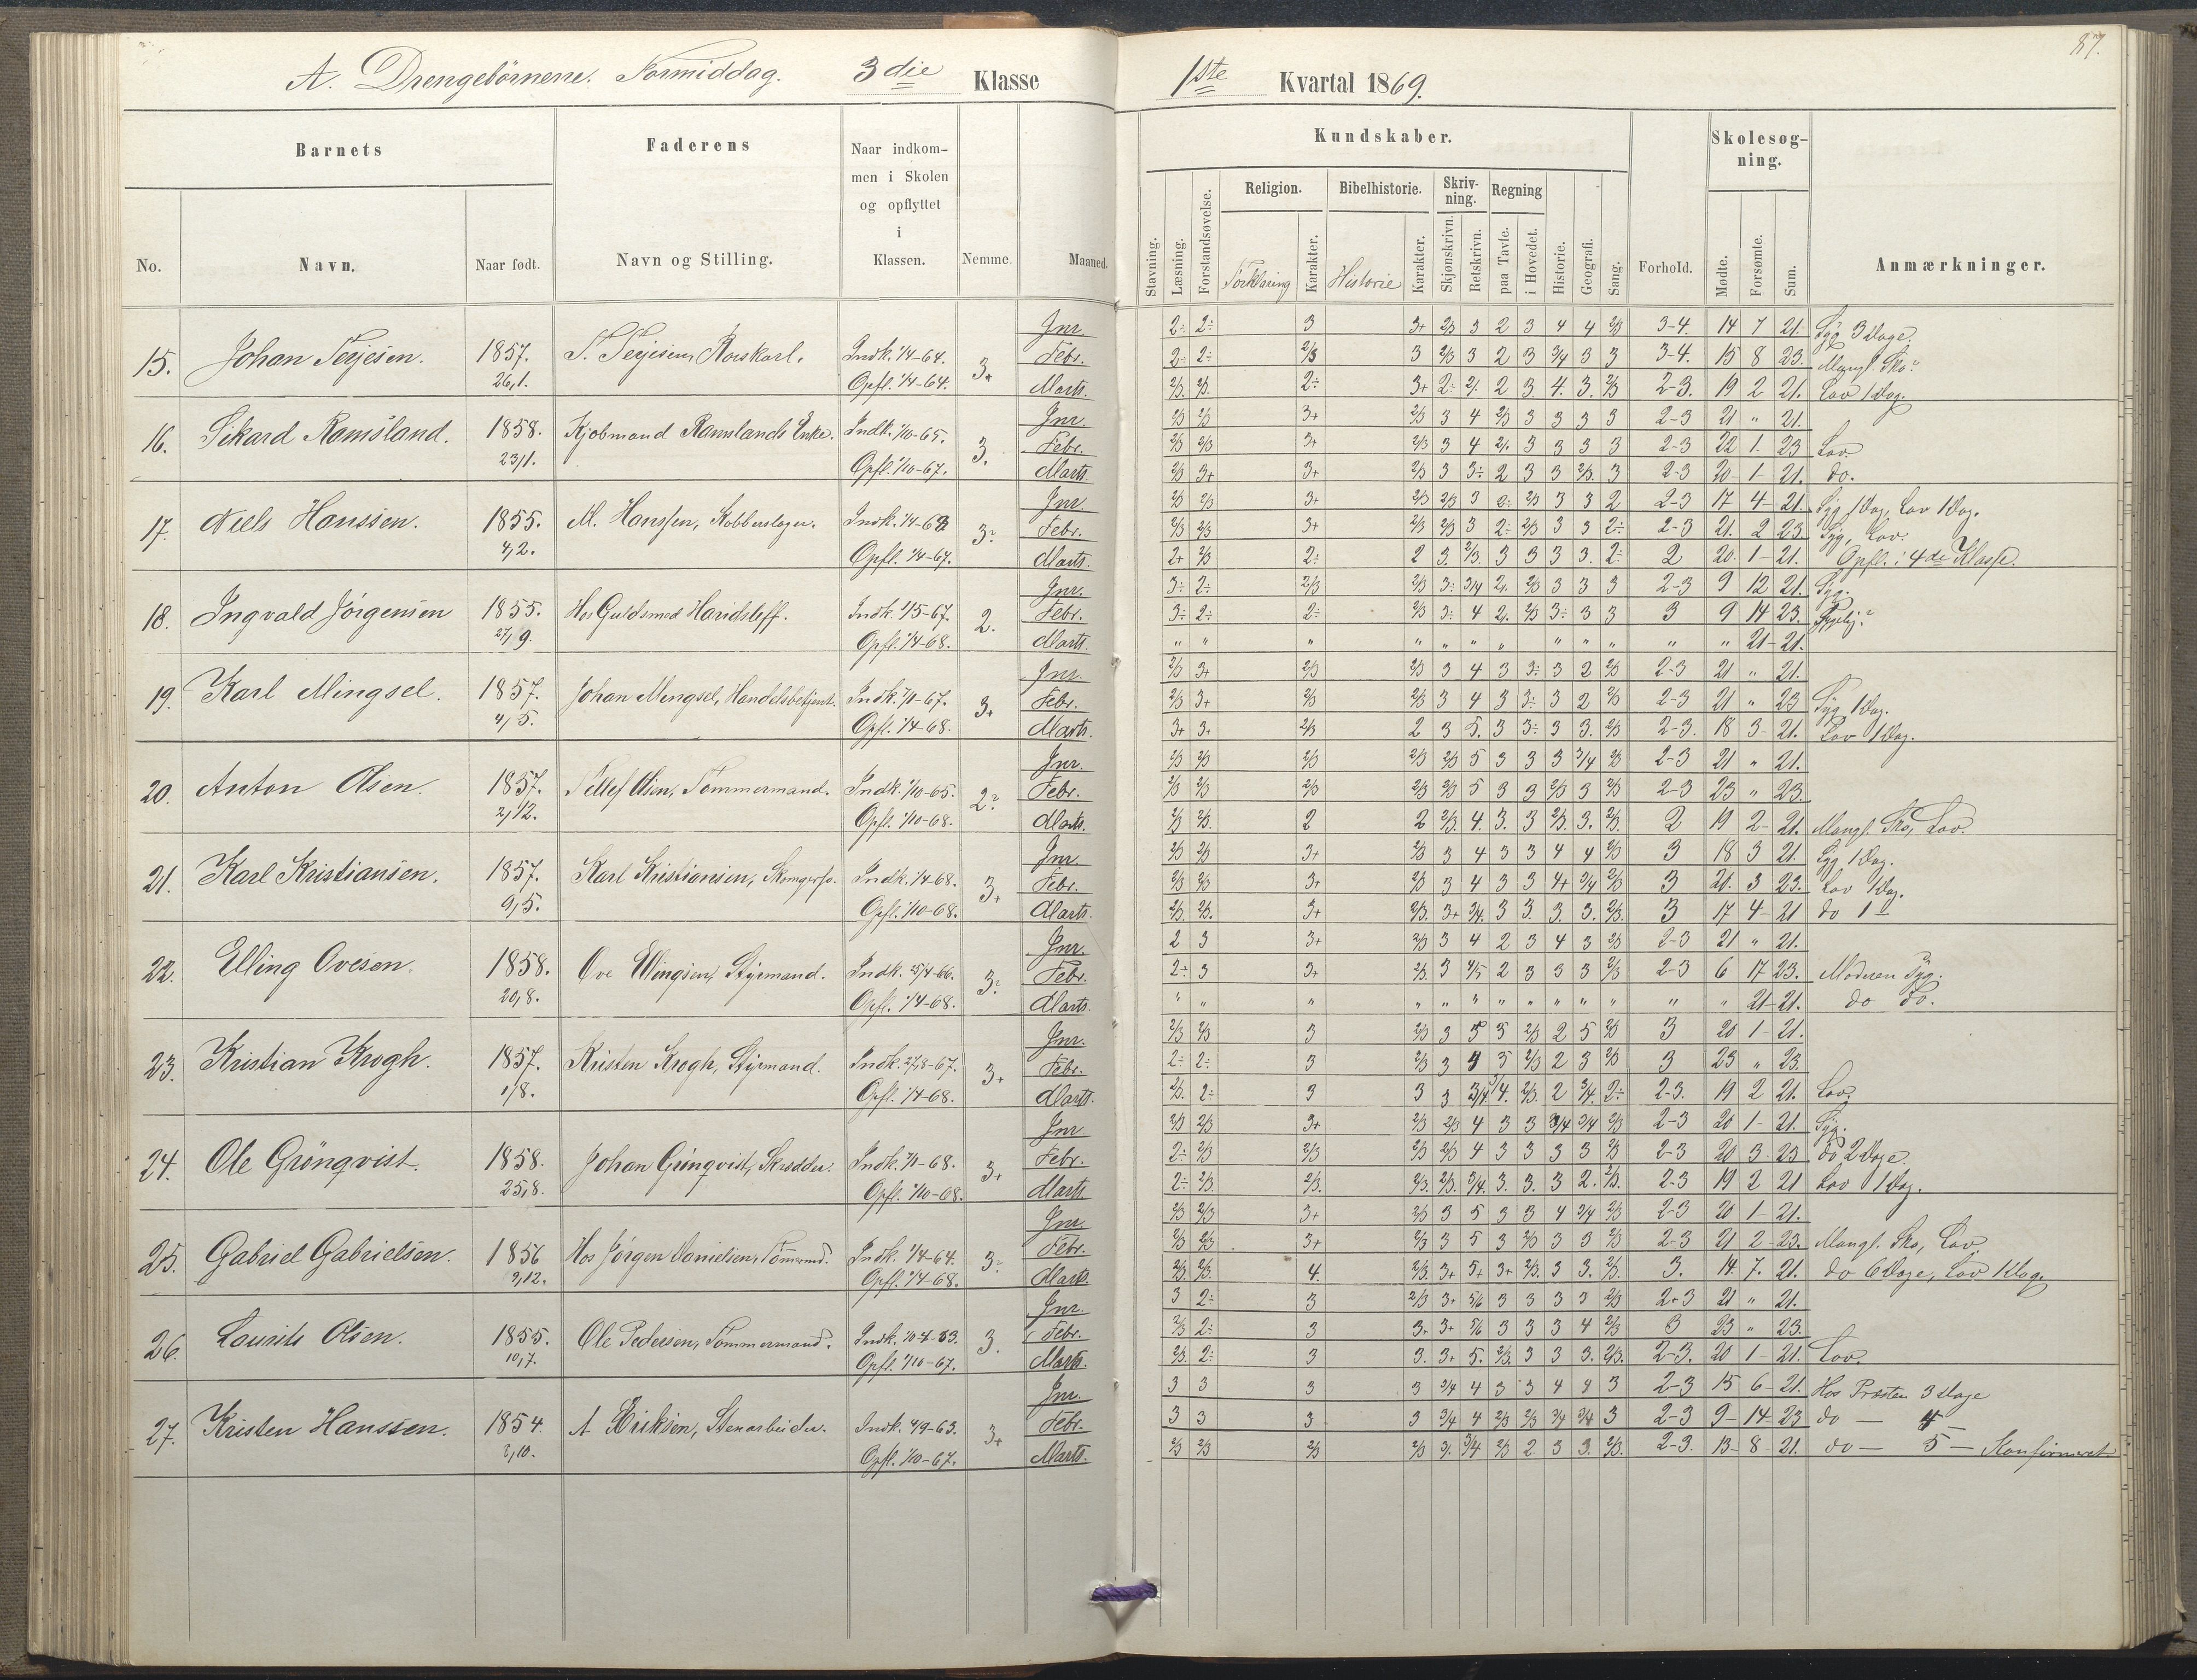 87.
A. Drengebörnene. Formiddag. 3die Klasse 1ste Kvartal 1869.
Barnets Faderens Naar indkommen i Skolen og opflyttet i Klassen. Nemme. Maaned. Kundskaber. Forhold. Skolesøgning. Anmærkninger.
No. Navn. Naar født. Navn og Stilling.
Stavning. Læsning. Forstandsøvelse. Religion. Forklaring Karakter. Bibelhistorie. Historie Karakter. Skrivning. Skjønskrivn. Retskrivn. Regning paa Tavle. i Hovedet. Historie. Geografi. Sang. Mødte. Forsømte. Sum.
15. Johan Terjesen. 1857. 26/1. T. Terjesen, Indk. 1/4-64. Opfl. 1/4-64. 3+
Jnr. 2÷ 2÷ 3 3+ 2/3 3 2 3 4 4 2/3 3-4. 14 7 21. Syg 3 Dage.
Febr. 2÷ 2÷ 2/3 3 2/3 3 2 3 3/4 3 3 3-4. 15 8 23. Mangl. Sko
Marts. 2/3. 2/3. 2÷ 3+ 2÷ 2 3 4. 3. 2/3 2-3. 19 2 21. Lov 1 Dag.
16. Sikard Ramsland. 1858. 23/1. Kjøbmand Ramslands Enke. Indk. 1/10-65. Opfl. 1/10-67. 3.
Jnr. 2/3 2/3 3+ 2/3 3 4 2/3 3 3 3 3 2-3 21 " 21.
Febr. 2/3 2/3 3+ 2/3 3 4 3 3 3 3 2-3 22 1 23 Lov.
Marts 2/3 3+ 3+ 2/3 3 3÷ 2 3 3 2/3. 3 2-3 20 1 21. do.
17. Niels Hanssen. 1855. 4/2. M. Hanssen, Kobberslager. Indk. 1/4-63 Opfl. 1/4-67.
Jnr. 2/3 2/3 3+ 2/3 2/3 3 2÷ 2/3 3 3 2 2-3 17 4 21. Syg 1 Dag, Lov 1 Dag.
Febr. 2/3 2/3 3+ 2/3 2/3 3 2÷ 2/3 3 3 2÷ 2-3 21. 2 23. Syg, Lov.
Marts. 2+ 2/3 2÷ 2 3. 2/3. 3 3 3 3. 2÷ 2 20. 1 21. Opfl. i 4de Klasse.
18. Ingvald Jörgensen 1855. 27/9. Hos Guldsmed Haridsleff. Indk. 1/5-67. Opfl. 1/4-68. 2.
Jnr. 3÷ 2÷ 2/3 2/3 3÷ 3/4 2/3 3 3 3 2-3 9 12 21. Syg.
Febr. 3÷ 2÷ 2÷ 2/3 3÷ 4 2/3 3÷ 3 3 3 9 14 23.
Marts. " " " " " " " " " " " " 21 21.
19. Karl Mingsel. 1857. 4/5. Johan Mingsel, Handelsbetjent. Indk. 7/1-67. Opfl. 1/4-68. 3+
Jnr. 2/3 3+ 2/3 2/3 3 4 3 3÷ 3 2 2/3 2-3 21 " 21.
Febr. 2/3 3+ 2/3 2/3 3 4 3 3÷ 3 2 2/3 2-3 21 " 23 Syg 1 Dag.
Marts. 3+ 3+ 2/3 2 3 5. 3 3÷ 3 3. 2/3 2-3. 18 3 21. Lov 1 Dag.
20. Anton Olsen. 1857. 2/12. Tellef Olsen, Tömmermand. Indk. 1/10-65. Opfl. 1/10-68.
Jnr. 2/3 2/3 2/3 2/3 2/3 5 3 3 3 3/4 2/3 2-3 21 " 21.
Febr. 2/3 2/3 2/3 2/3 2/3 5 3 3 2/3 3 2/3 2-3 23 " 23.
Marts. 2/3 2/3. 2 2 2/3. 4. 3. 3 2/3. 3. 2/3. 2 19 2 21. Mangl. Sko, Lov.
21. Karl Kristiansen. 1857. 9/5. Karl Kristiansen, Skomagersv. Indk. 1/4-68. Opfl. 1/10-68. 3+
Jnr. 2/3 2/3 3+ 2/3 3 4 3 3 4 4 2/3 3 18 3 21. Syg 1 Dag.
Febr. 2/3 2/3 3+ 2/3 3 4 3 3 4+ 3/4 2/3 3 20. 3 23. Lov 1 Dag.
Marts. 2/3. 2/3. 3+ 2/3. 3+ 3/4. 3 3. 3. 3. 2/3. 3 17 4 21 do 1
22. Elling Ovesen. 1858. 20/8. Ove Ellingsen, Styrmand. Indk. 25/4-66. Opfl. 1/4-68.
Jnr. 2 3 3+ 2/3 3 4 2 3 4 3 2/3 2-3 21 " 21.
Febr. 2+ 3 3+ 2/3. 3 4/5 2 3 3 3 2/3 2-3 6 17 23. Moderen Syg.
Marts. " " " " " " " " " " " " " " 21 21. do do.
23. Kristian Krogh. 1857. 1/8. Kristen Krogh, Styrmand. Indk. 27/8-67. Opfl. 1/4-68. 3+
Jnr. 2/3 2/3 3 2/3 3 3 2/3 2 5 2/3 3 20 1 21.
Febr. 2÷ 2÷ 3 2/3 3 4 3 2/3 2 3 2/3 3 23 " 23.
Marts. 2/3. 2÷ 3 3 3 3/4. 2/3. 2 3/4. 2÷ 2-3. 19 2 21. Lov.
24. Ole Grönqvist. 1858. 25/8. Johan Grönqvist, Skrædder. Indk. 7/1-68. Opfl. 1/10-68. 3+
Jnr. 2/3 2/3 3+ 2/3 2/3 4 3 3 3/4 3/4 2/3 2-3 20 1 21. Syg.
Febr. 2÷ 2/3 2/3 2/3 2/3 4 3 3 3 3 2/3 2-3 20 3 23 do 2 Dage.
Marts. 2÷ 2/3. 2/3. 2/3. 2/3. 3/4. 3. 3. 3 2. 2/3. 2-3 19 2 21 Lov 1 Dag.
25. Gabriel Gabrielsen. 1856 Hos Jörgen Danielsen, Tömmrmd. Indk. 1/4-64. Opfl. 1/4-68.
Jnr. 2/3 2/3 3+ 2/3 3 5 3 3 4 3/4 2/3 2-3 20 1 21.
Febr. 2/3 2/3 3+ 2/3 3 5 3 2/3 3 3 2/3 2-3 21 2 23. Mangl. Sko, Lov
Marts. 2/3. 2/3. 4. 2/3. 3+ 5+ 3+ 2/3. 3 3. 2/3. 3. 14. 7. 21. do 6 Dage, Lov 1 Dag.
26. Laurits Olsen. 1855. 10/7. Ole Pedersen, Tömmermand. Opfl. 1/10-67. 3.
Jnr. 3 2÷ 3 2/3 3+ 5/6 3 3 3 3 2/3 2-3 21 " 21.
Febr. 2/3 2÷ 3 3+ 3+ 5/6 3 3 3 4 2/3 3 23 " 23.
Marts. 2/3. 2÷ 3 3. 3+ 5. 2/3. 3 3 3. 2/3. 2-3. 20 1 21. Lov.
27. Kristen Hanssen. 1854. A Eriksen, Stenarbeider. Opfl. 1/10-67. 3+
Jnr. 3 3 3 3 3/4 4 3 3 4 4 3 2-3 15 6 21. Hos Præsten 3 Dage
Febr. 3 3 3 3 3/4 4 2/3 2/3 3/4 3/4 3 2-3 9 14 23 do — 4 —
Marts. 2/3 2/3 2/3 2/3 3/4 2/3 2 3 3. 2/3. 2-3. 13 8 21. do — 5 — Konfirmeret.